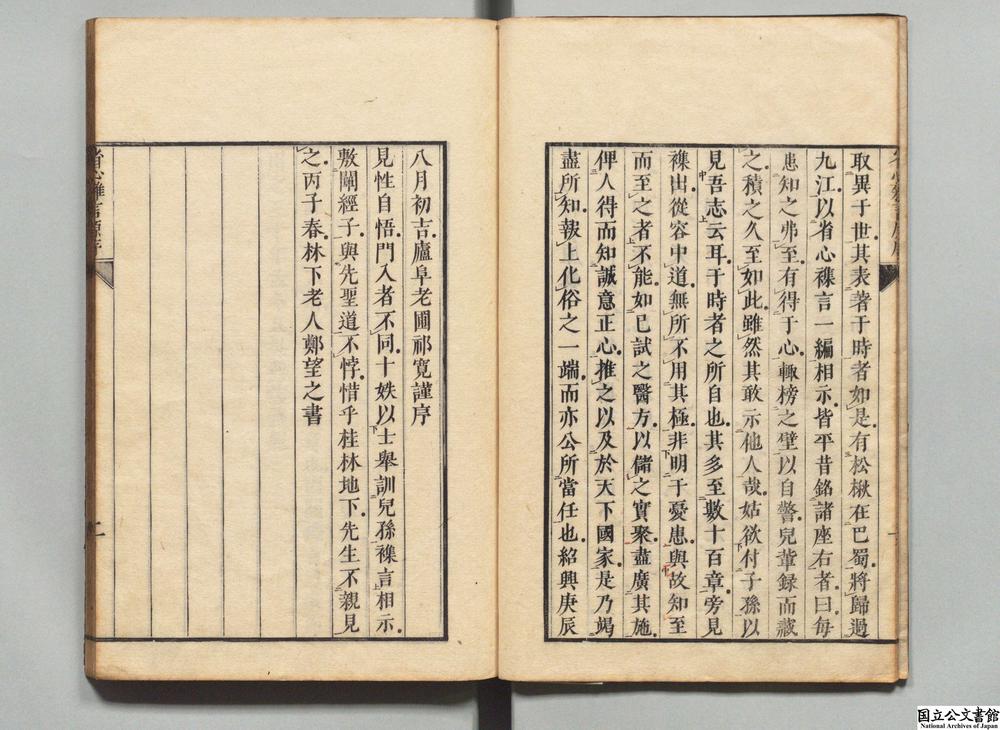 取異于世其表著于時者如是有松楸在巴蜀將歸過
九江以省心襍言一編相示皆平昔銘諸座右者曰每
患知之弗至有得于心輙榜之壁以自警兒軰録而藏
之積之久至如此雖然其敢示他人哉姑欲付子孫以
見吾志云耳于時者之所自也其多至數十百章旁見
襍出從容中道無所不用其極非明于憂患與故知至
而至之者不能如已試之醫方以儲之實聚盡廣其施
俾人得而知誠意正心推之以及於天下國家是乃竭
盡所知報上化俗之一端而亦公所當任也紹興庚辰
八月初吉廬阜老圃祁寛謹序
見性自悟門入者不同十姝以士舉訓兒孫襍言相示
敷闡經子與先聖道不悖惜乎桂林地下先生不親見
之丙子春林下老人鄭望之書
省心雜言原序
二
国立公文書館
National Archives of Japan